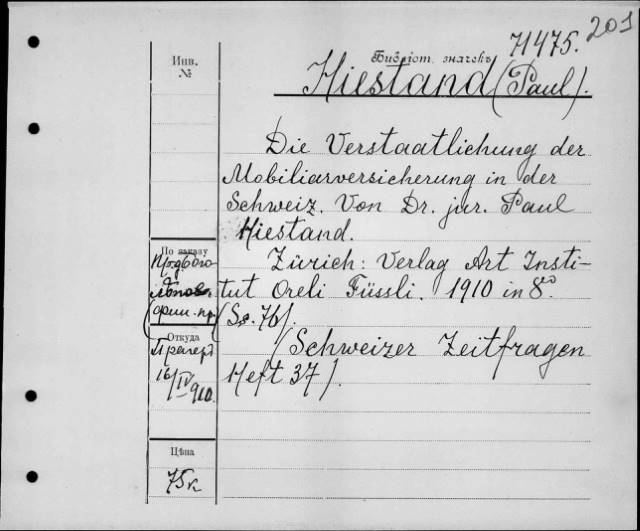 201
71475.
Инв.
№
Библіот. значекъ
Hiestand (Paul).
Die Verstaatlichung der
Mobiliarversicherung in der
Schweiz. Von Dr. jur. Paul
Hiestand.
Zürich: Verlag Art Insti-
tut Oreli Füssli. 1910 in 8º
(Ss. 76).
(Schweizer Zeitfragen
Heft 37).
По заказу
Откуда
16/IV 910.
Цѣна
75к